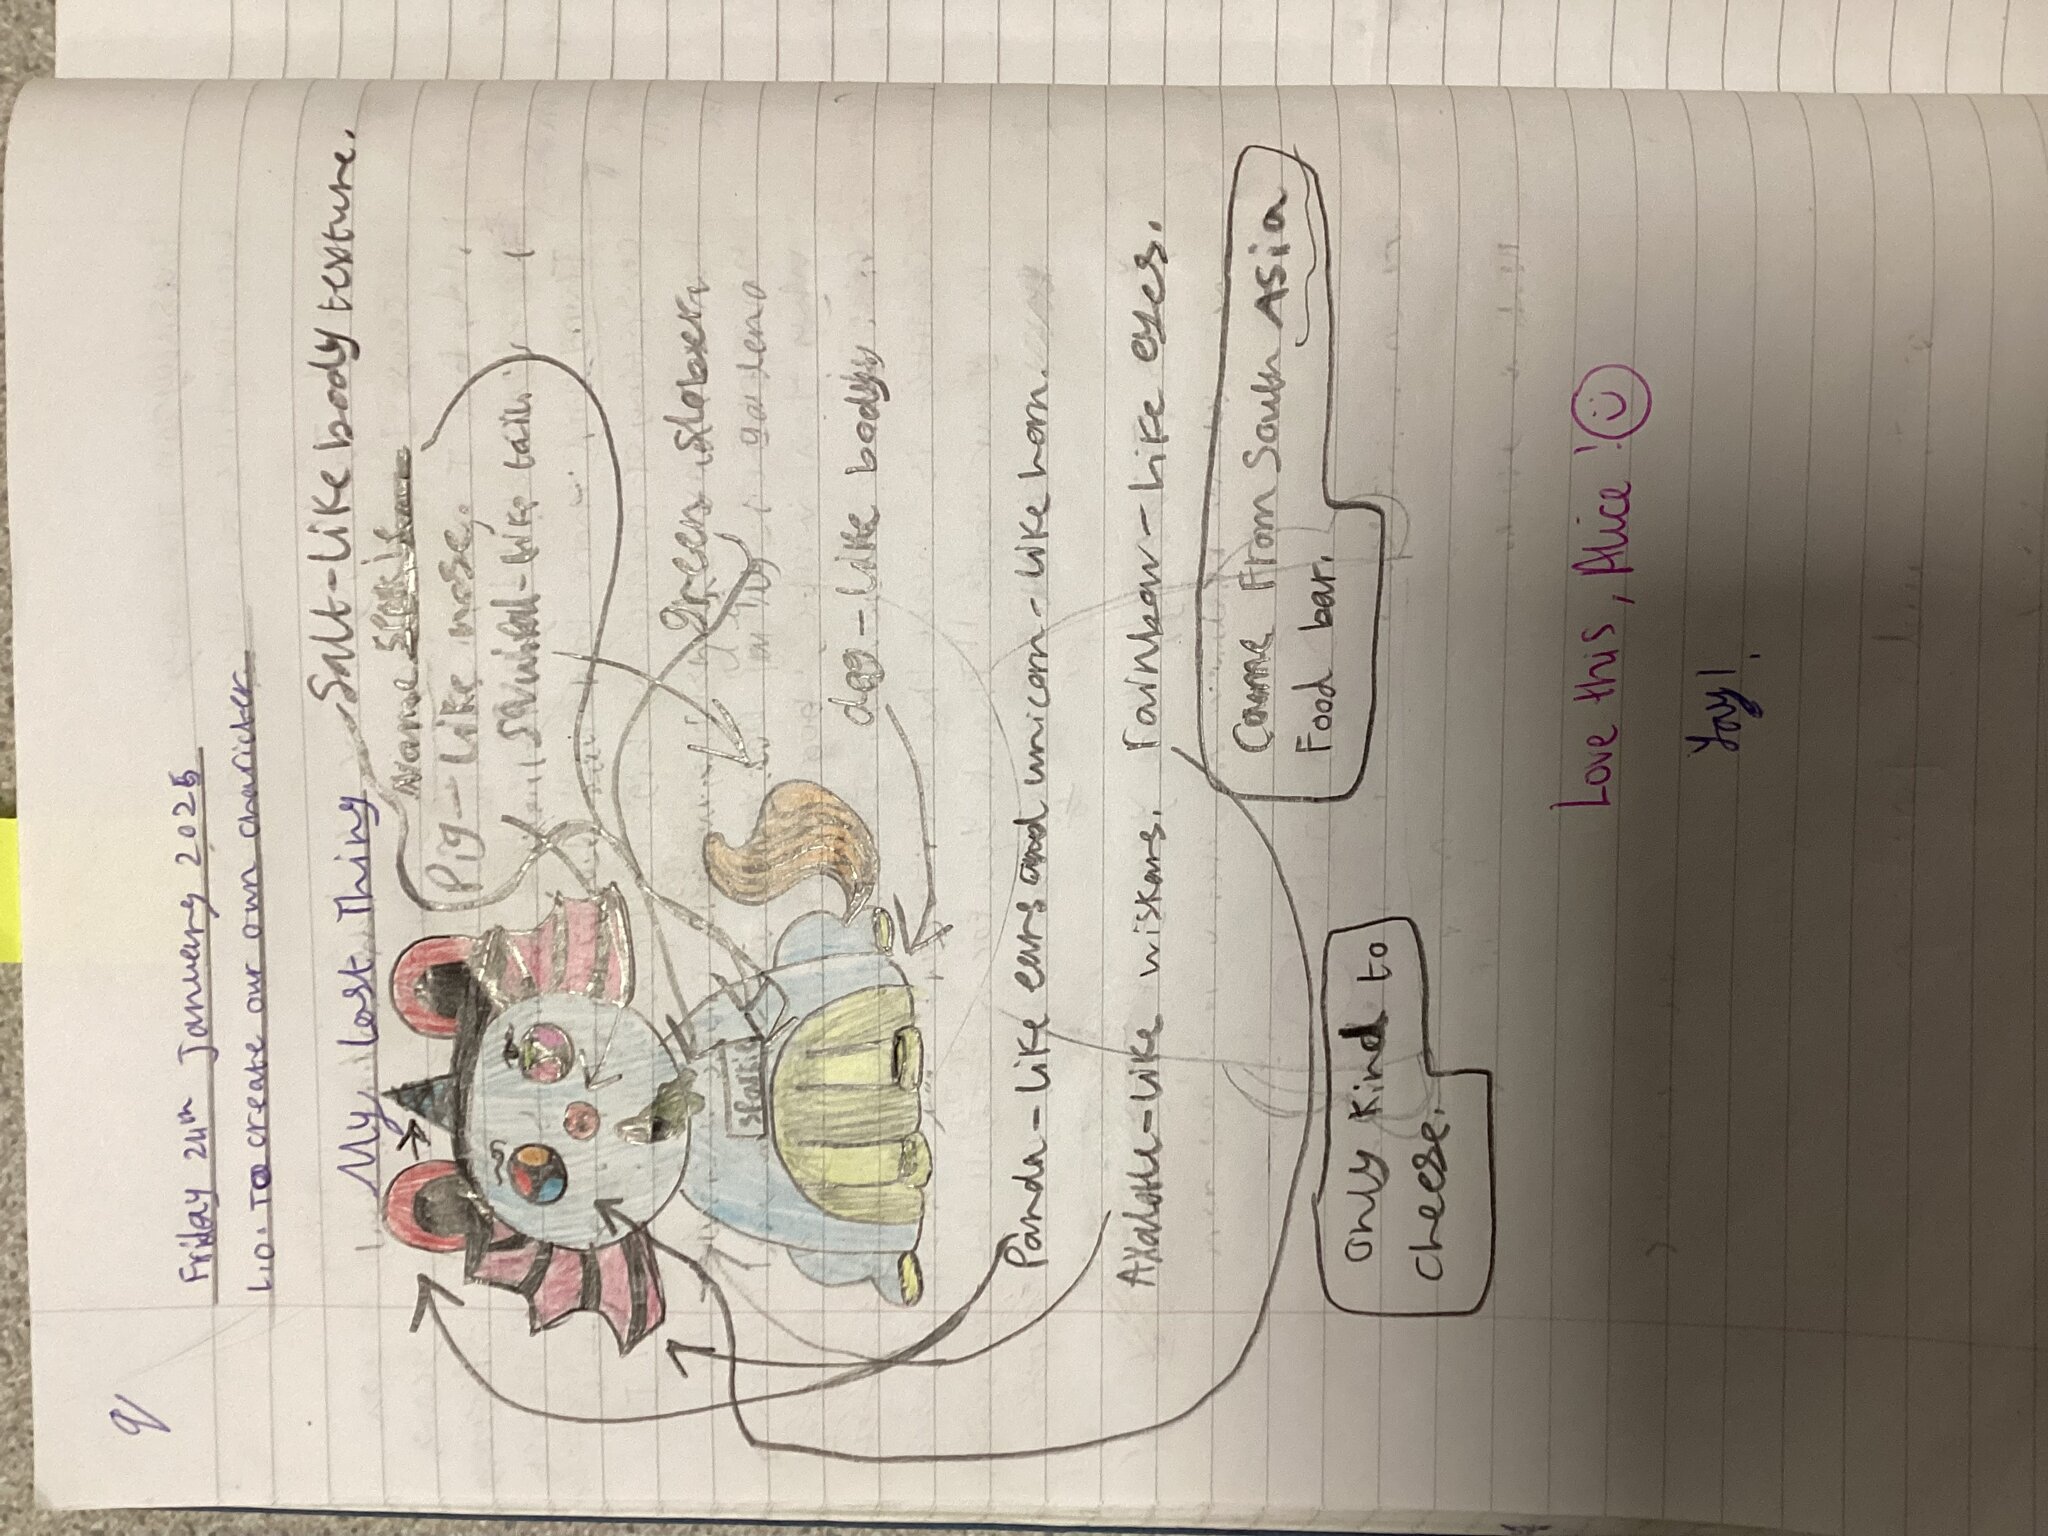 Friday 24th January 2025
L.O. To create our own charicter.
My Lost Thing
Salt-like body texture.
Name
Pig-like nose.
-like tail.
sparkie
green slober.
dog-like body
Panda-like ears and unicorn-like horn.
Axalotle-like wiskars. rainbow-like eyes.
Came From South Asia
Food bar.
only kind to
cheese.
Love this, Alice!
Yay!